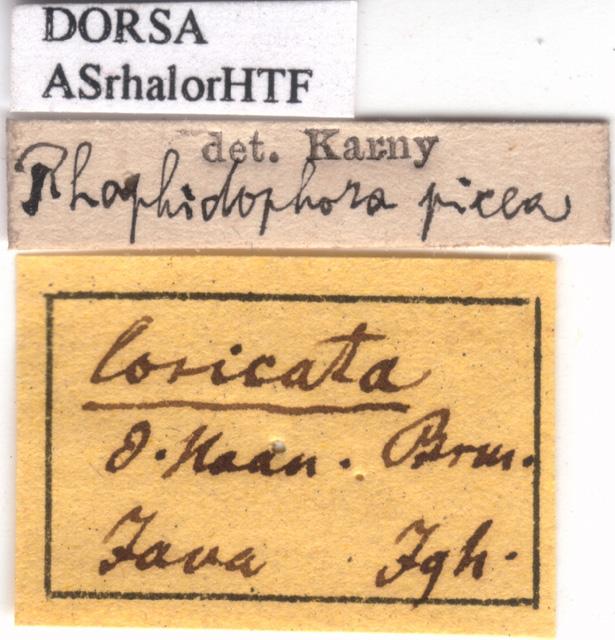 DORSA
ASrhalorHTF
det. Karny
Rhaphidophora picea
loricata
d. Haan. Brun.
Java Jgh.